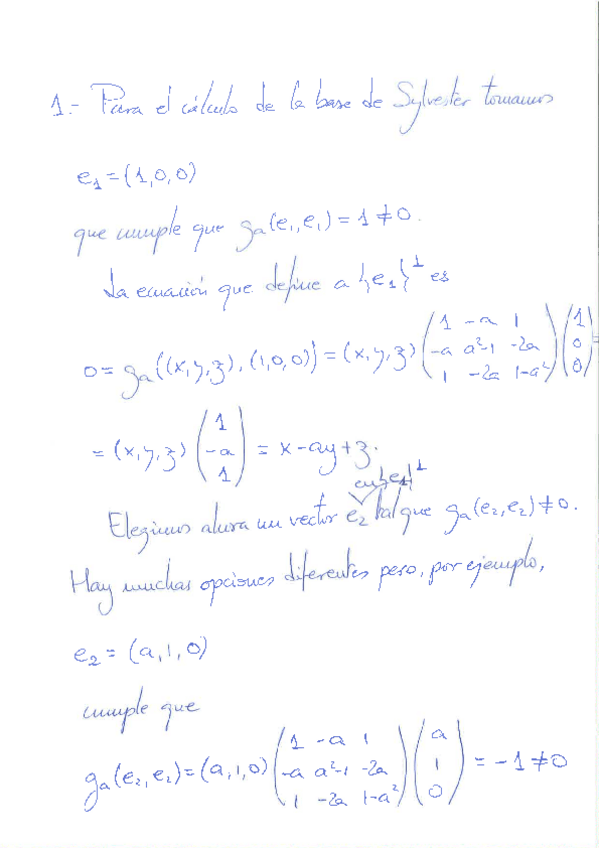 1.- Para el cálculo de la base de Sylvester tomamos
e₁ = (1,0,0)
que cumple que gₐ(e₁,e₁) = 1 ≠ 0.
La ecuación que define a {e₁}^⊥ es
0 = gₐ((x,y,z),(1,0,0)) = (x,y,z) ( 1 -a 1 ; -a a²-1 -2a ; 1 -2a 1-a² ) ( 1 ; 0 ; 0 ) =
= (x,y,z) ( 1 ; -a ; 1 ) = x - ay + z.
en {e₁}^⊥
Elegimos ahora un vector e₂ tal que gₐ(e₂,e₂) ≠ 0.
Hay muchas opciones diferentes pero, por ejemplo,
e₂ = (a,1,0)
cumple que
gₐ(e₂,e₂) = (a,1,0) ( 1 -a 1 ; -a a²-1 -2a ; 1 -2a 1-a² ) ( a ; 1 ; 0 ) = -1 ≠ 0